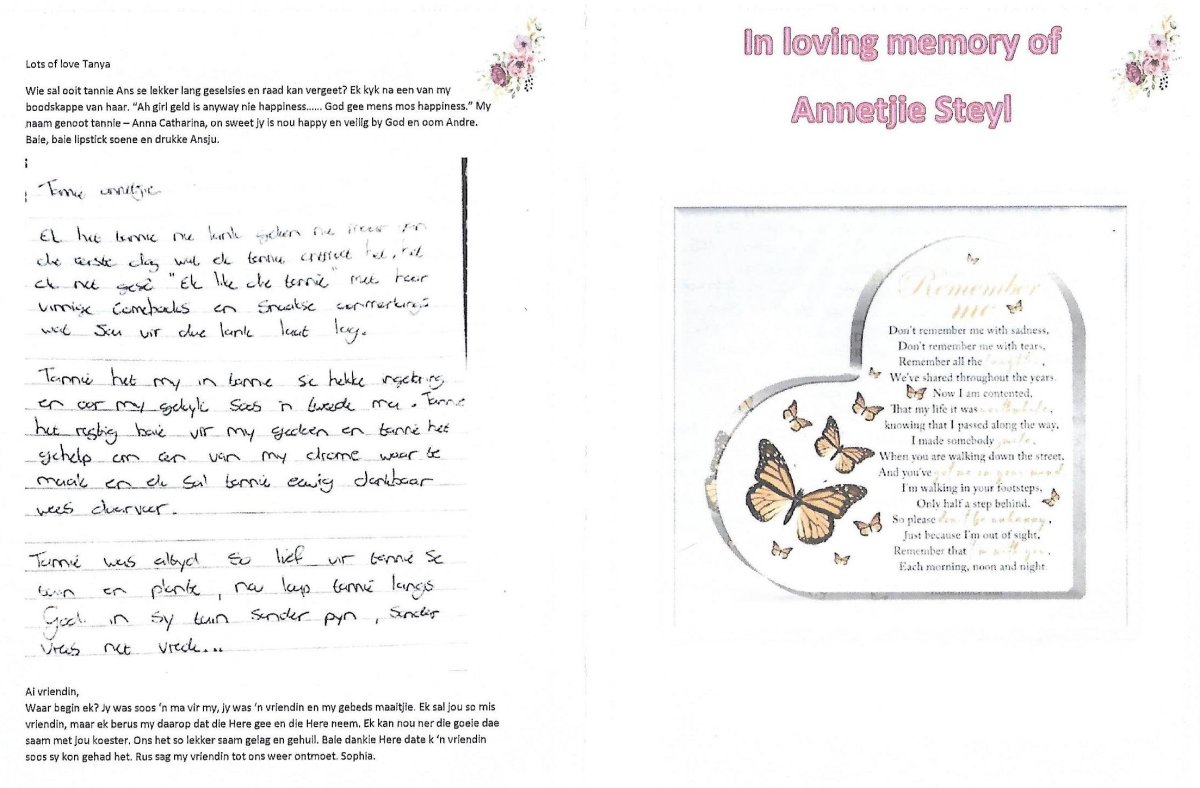 Lots of love Tanya
Wie sal ooit tannie Ans se lekker lang geselsies en raad kan vergeet? Ek kyk na een van my
boodskappe van haar. “Ah girl geld is anyway nie happiness...... God gee mens mos happiness.” My
naam genoot tannie – Anna Catharina, on sweet jy is nou happy en veilig by God en oom Andre.
Baie, baie lipstick soene en drukke Ansju.
Tannie annetjie
Ek het tannie nie lank geken nie maar van
die eerste dag wat ek tannie ontmoet het, het
ek net gesê "Ek like die tannie" met haar
vinnige comebacks en snaakse
wat jou vir due lank laat lag.
Tannie het my in tannie se hekke ingekring
en oor my gekyk soos 'n tweede ma. Tannie
het regtig baie vir my gedoen en tannie het
gehelp om een van my drome waar te
maak en ek sal tannie ewig dankbaar
wees daarvoor.
Tannie was altyd so lief vir tannie se
tuin en plante, nou loop tannie langs
God in sy tuin sonder pyn, sonder
vrees net vrede...
Ai vriendin,
Waar begin ek? Jy was soos ‘n ma vir my, jy was ‘n vriendin en my gebeds maaitjie. Ek sal jou so mis
vriendin, maar ek berus my daarop dat die Here gee en die Here neem. Ek kan nou ner die goeie dae
saam met jou koester. Ons het so lekker saam gelag en gehuil. Baie dankie Here date k ‘n vriendin
soos sy kon gehad het. Rus sag my vriendin tot ons weer ontmoet. Sophia.
In loving memory of
Annetjie Steyl
Remember
me
Don't remember me with sadness,
Don't remember me with tears,
Remember all the laughter,
We've shared throughout the years.
Now I am contented,
That my life it was worthwhile,
knowing that I passed along the way,
I made somebody smile.
When you are walking down the street,
And you've got me on your mind
I'm walking in your footsteps,
Only half a step behind.
So please don't be unhappy,
Just because I'm out of sight,
Remember that I'm with you,
Each morning, noon and night.